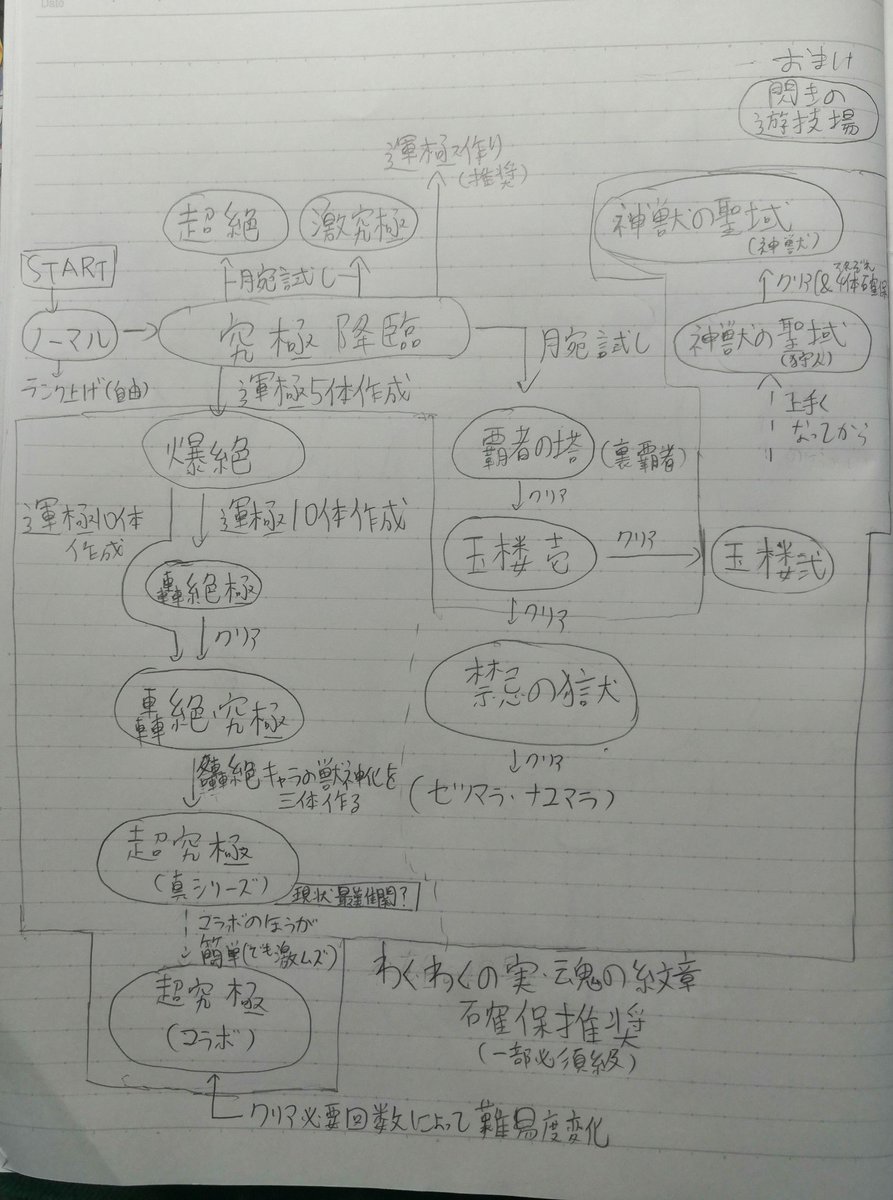 Date
おまけ
閃きの
遊技場
運極作り
(推奨)
超絶
激究極
神獣の聖域
(神獣)
START
腕試し
クリア(&それぞれ4体確保
ノーマル
究極降臨
腕試し
神獣の聖域
(狩人)
ランク上げ(自由)
運極5体作成
上手く
なってから
爆絶
覇者の塔
(裏覇者)
運極10体
作成
運極10体作成
クリア
玉楼壱
クリア
玉楼弐
轟絶極
クリア
クリア
禁忌の獄
轟絶・究極
クリア
轟絶キャラの獣神化を
三体作る
(ゼツマラ・ナユマラ)
超究極
(真シリーズ)
現状最難関?
コラボのほうが
簡単(でも激ムズ)
わくわくの実・魂の紋章
確保推奨
(一部必須級)
超究極
(コラボ)
クリア必要回数によって難易度変化